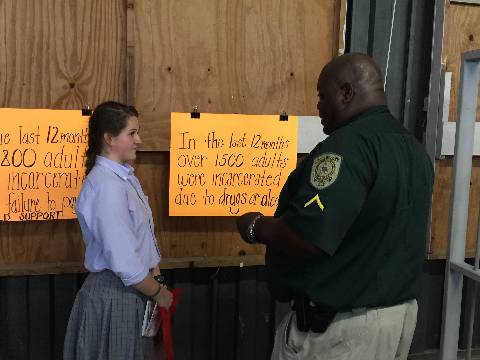 e last 12 month
200 adult
incarcerat
failure to pay
D SUPPORT
In the last 12 months
over 1500 adults
were incarcerated
due to drugs or alc